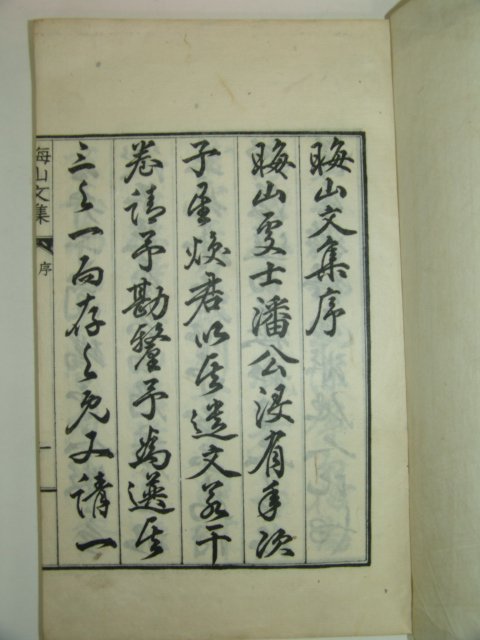 晦山文集序
晦山處士潘公沒有年次
子聖煥君以其遺文若干
卷請予勘釐予爲選其
三之一而存之旣又請一
晦山文集
序
一